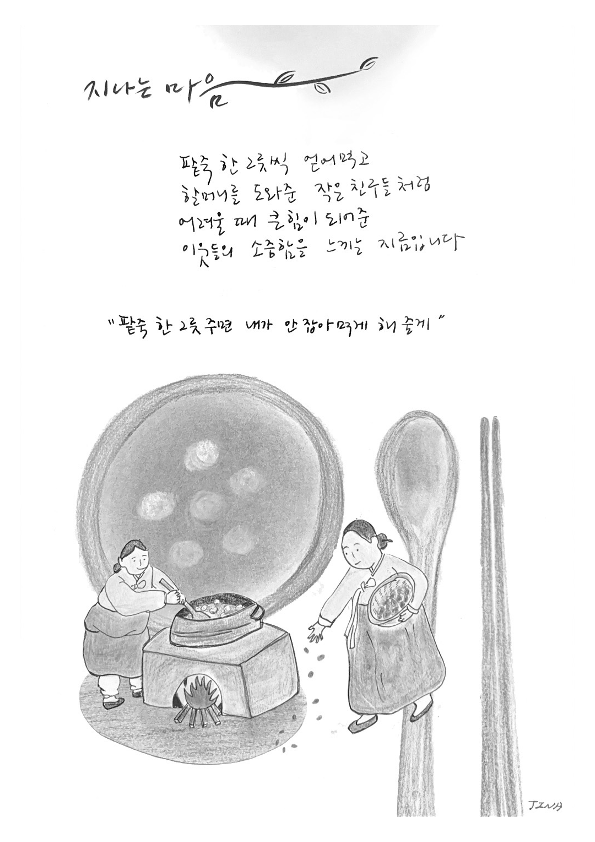 지나는 마음
팥죽 한 그릇씩 얻어먹고
할머니를 도와준 작은 친구들처럼
어려울 때 큰 힘이 되어준
이웃들의 소중함을 느끼는 지금입니다
"팥죽 한 그릇 주면 내가 안 잡아먹게 해 줄게"